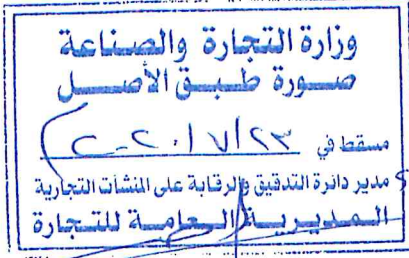 وزارة التجارة والصناعة
صورة طبق الأصل
مسقط في ٢٠٢٠/٧/٢٣
مدير دائرة التدقيق والرقابة على المنشآت التجارية
المديرية العامة للتجارة